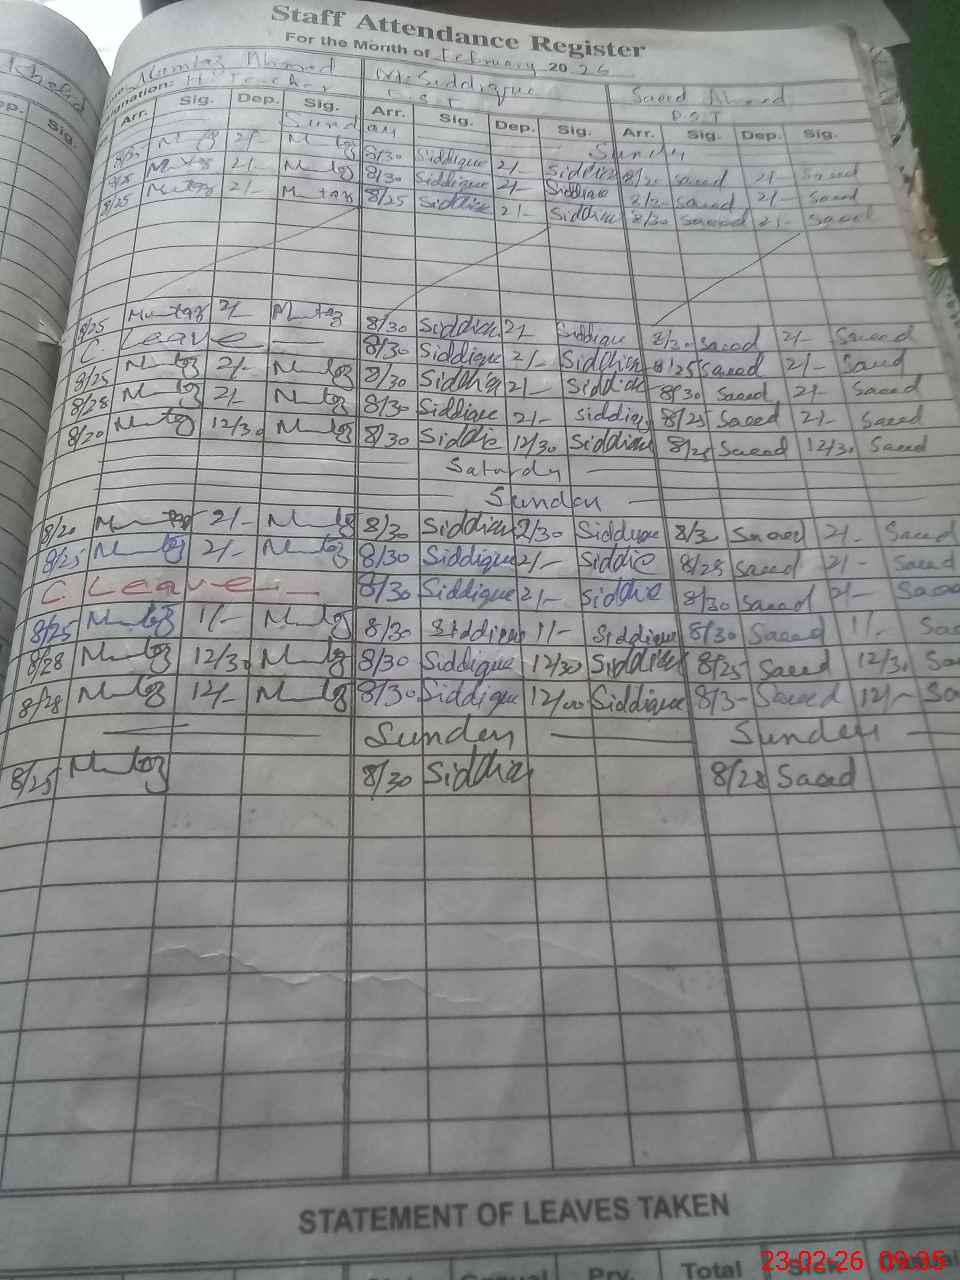 Staff Attendance Register
For the Month of February 2026
Mumtaz Ahmed M. Siddique Saeed Ahmed
P.S.T
Arr. Sig. Dep. Sig. Arr. Sig. Dep. Sig. Arr. Sig. Dep. Sig.
Sunday Sunday
8/25 2/- 8/30 Siddique 2/- Siddique 8/25 Saeed 2/- Saeed
8/28 2/- 8/30 Siddique 2/- Siddique 8/30 Saeed 2/- Saeed
8/25 Mumtaz 2/- Mumtaz 8/25 Siddique 2/- Siddique 8/30 Saeed 2/- Saeed
8/25 Mumtaz 2/- Mumtaz 8/30 Siddique 2/- Siddique 8/30 Saeed 2/- Saeed
C. Leave 8/30 Siddique 2/- Siddique 8/25 Saeed 2/- Saeed
8/25 Mumtaz 2/- Mumtaz 8/30 Siddique 2/- Siddique 8/30 Saeed 2/- Saeed
8/28 Mumtaz 2/- Mumtaz 8/30 Siddique 2/- Siddique 8/25 Saeed 2/- Saeed
8/20 Mumtaz 12/30 Mumtaz 8/30 Siddique 12/30 Siddique 8/25 Saeed 12/30 Saeed
Saturdy
Sunday
8/20 Mumtaz 2/- Mumtaz 8/30 Siddique 2/30 Siddique 8/3 Saeed 2/- Saeed
8/25 Mumtaz 2/- Mumtaz 8/30 Siddique 2/- Siddique 8/25 Saeed 2/- Saeed
C. Leave 8/30 Siddique 2/- Siddique 8/30 Saeed 2/- Saeed
8/25 Mumtaz 1/- Mumtaz 8/30 Siddique 1/- Siddique 8/30 Saeed 1/-
8/28 Mumtaz 12/30 Mumtaz 8/30 Siddique 12/30 Siddique 8/25 Saeed 12/30
8/28 Mumtaz 12/- Mumtaz 8/30 Siddique 12/00 Siddique 8/3- Saeed 12/-
Sunday Sunday
8/25 Mumtaz 8/30 Siddique 8/28 Saeed
STATEMENT OF LEAVES TAKEN
Total
23-02-26 09:35